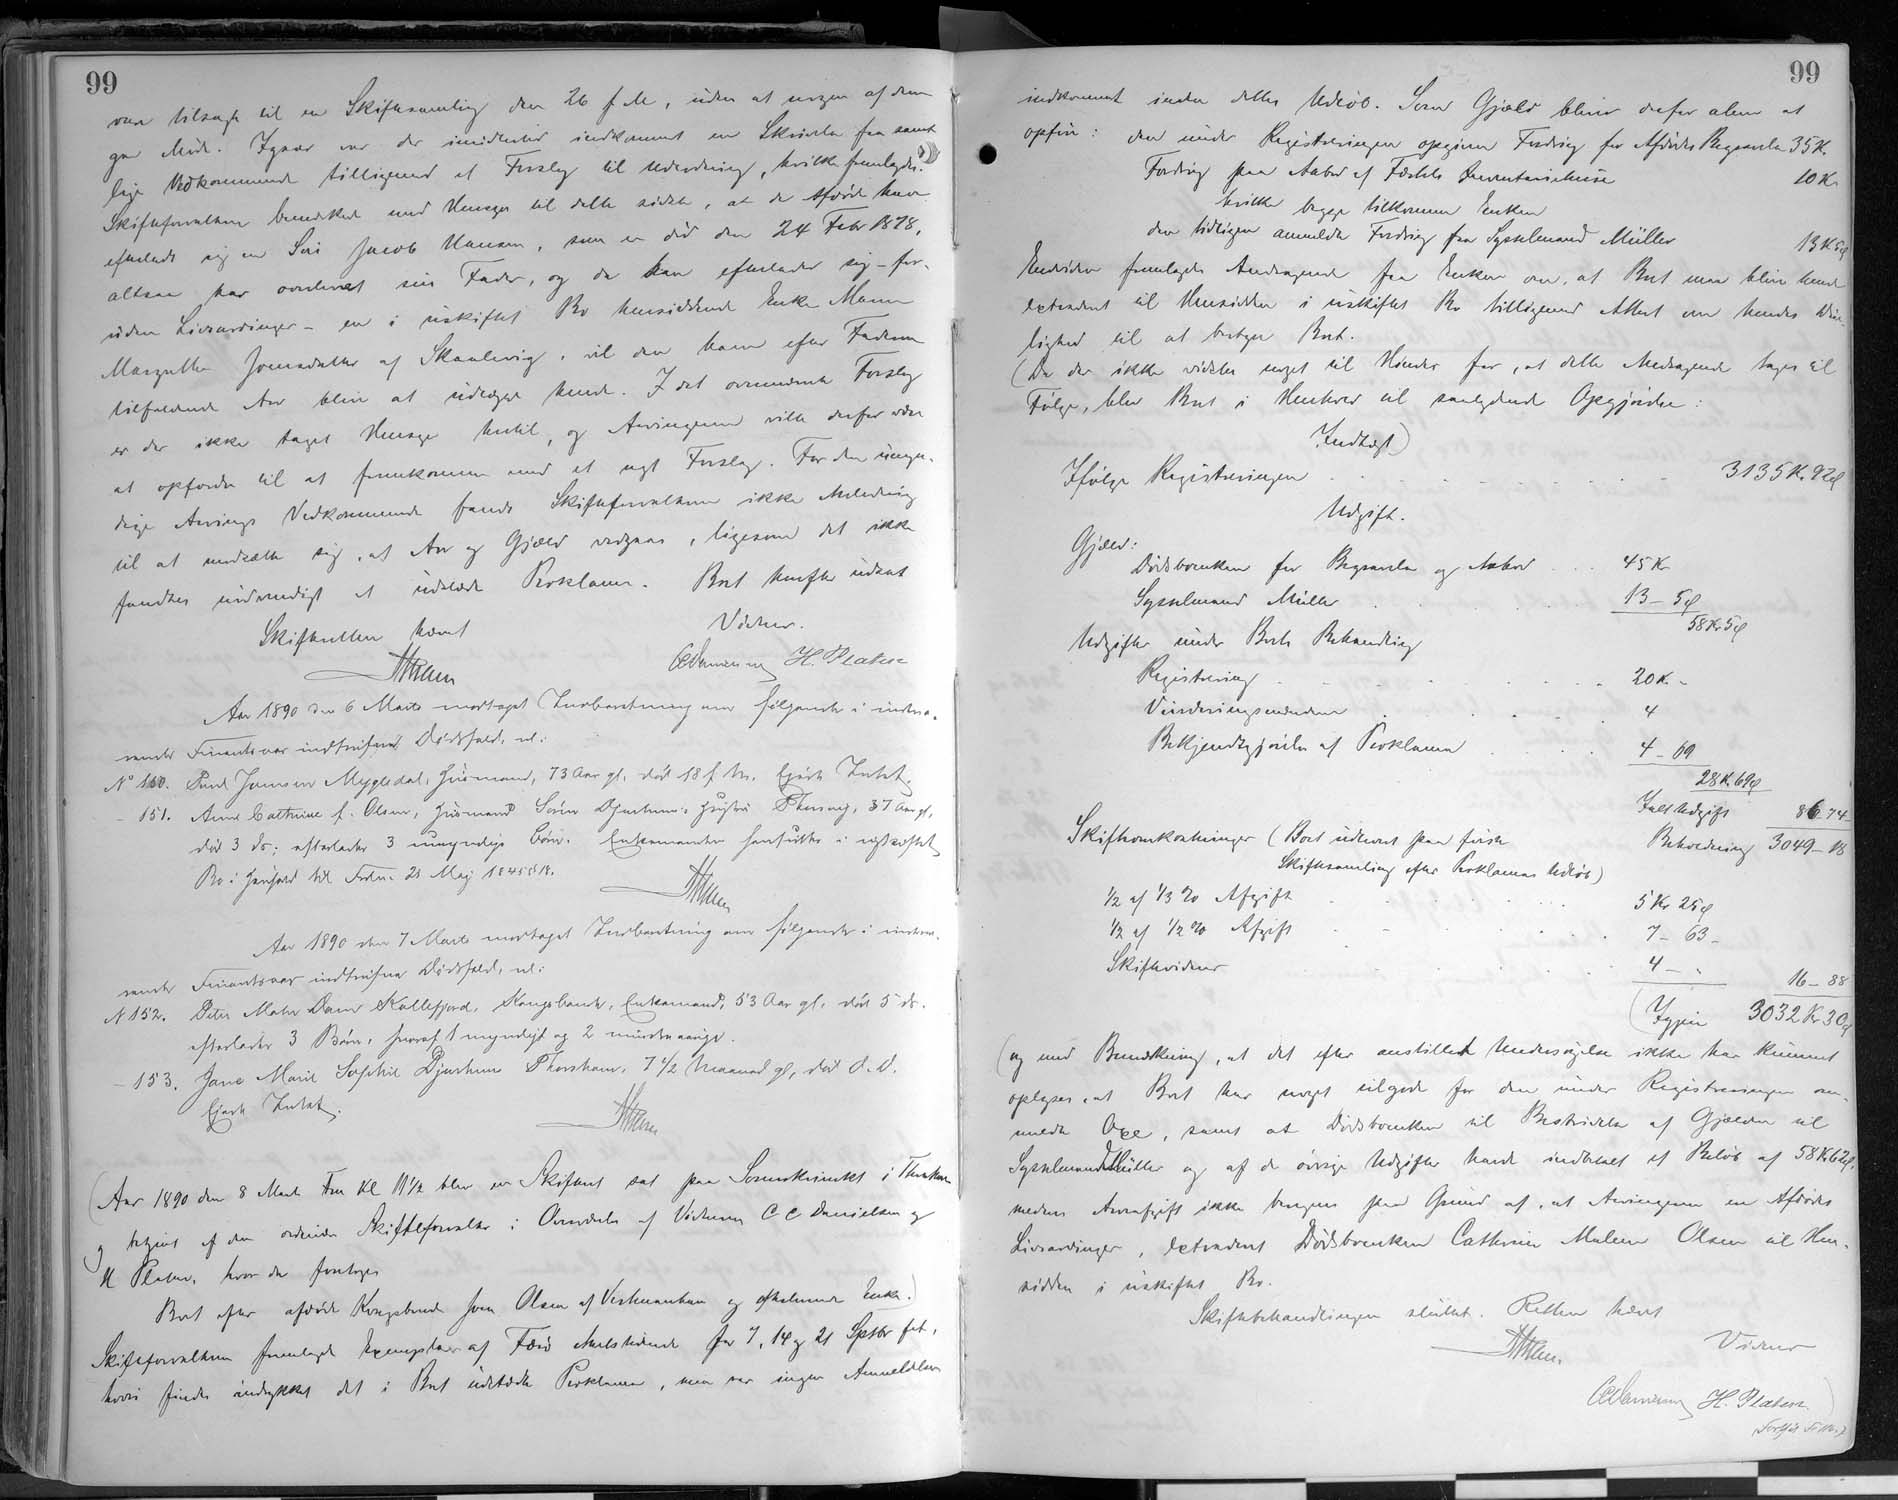 99
være tilsagt til en Skiftesamling den 26 f. M., uden at nogen af dem
gav Møde. Igaar var der imidlertid indkommet en Skrivelse fra samt-
lige Vedkommende tilligemed et Forslag til Udlodning, hvilke fremlagdes.
Skifteforvalteren bemærkede med Hensyn til dette sidste, at de Afdøde have
efterladt sig en Søn Jacob Hansen, som er død den 24 Febr 1878,
altsaa har overlevet sin Fader, og da han efterlader sig – for-
uden Livsarvinger – en i uskiftet Bo hensiddende Enke Maren
Margrethe Joensdatter af Skaalevig, vil den ham efter Faderen
tilfaldende Arv blive at udlægge hende. I det ovennævnte Forslag
er der ikke taget Hensyn hertil, og Arvingerne ville derfor være
at opfordre til at fremkomme med et nyt Forslag. For den umyn-
dige Arvings Vedkommende fandt Skifteforvalteren ikke Anledning
til at modsætte sig, at Arv og Gjæld vedgaas, ligesom det ikke
fandtes nødvendigt at udstede Proklama. Boet herefter udsat
Skifteretten hævet
Vidner.
CCDanielsen H. Platen
Aar 1890 den 6 Marts modtaget Indberetning om følgende i indevæ-
rende Finantsaar indtrufne Dødsfald, nl:
No 150. Poul Joensen Mygledal, Huusmand, 73 Aar gl. død 18 f. M. Ejede Intet.
– 151. Anne Cathrine f. Olsen, Huusmand Søren Djurhuus's Hustru Thorshavn, 37 Aar gl,
død 3 ds; efterlader 3 umyndige Børn. Enkemanden hensidder i uskiftet
Bo i Henhold til Frdn. 21 Maj 1845 § 18.
Aar 1890 den 7 Marts modtaget Indberetning om følgende i indevæ-
rende Finantsaar indtrufne Dødsfald, nl:
N 152. Peter Mohr Dam Kollefjord, Kongsbonde, Enkemand, 53 Aar gl. død 5 ds.
efterlader 3 Børn, hvoraf 1 myndigt og 2 mindreaarige.
– 153. Jane Marie Sophie Djurhuus Thorshavn, 7 1/2 Maaned gl, død d. d.
Ejede Intet.
(Aar 1890 den 8 Marts Fm Kl 11 1/2 blev en Skifteret sat paa Sorenskriveriet i Thorshavn
og betjent af den ordinære Skifteforvalter i Overværelse af Vidnerne C C Danielsen og
H Platen, hvor da foretoges
Boet efter afdøde Kongsbonde Joen Olsen af Vestmanhavn og efterlevende Enke.)
Skifteforvalteren fremlagde Exemplarer af Færø Amtstidende for 7, 14 og 21 Septbr f. A.,
hvori findes indrykket det i Boet udstedte Proklama, men var ingen Anmeldelser
99
indkommet inden dettes Udløb. Som Gjæld bliver derfor alene at
opføre: den under Registreringen opgivne Fordring for Afdødes Begravelse 35 Kr.
Fordring paa Aabod af Fæstets Inventariehuse 10 Kr
hvilke begge tilkomme Enken
den tidligere anmeldte Fordring fra Sysselmand Müller 13 K 5 Ø
Endvidere fremlagdes Andragende fra Enken om, at Boet maa blive hende
extraderet til Hensidden i uskiftet Bo tilligemed Attest om hendes Due-
lighed til at bestyre Boet.
(Da der ikke vidstes noget til Hinder for, at dette Andragende toges til
Følge, blev Boet i Henhold til saalydende Opgjørelse:
Indtægt)
Ifølge Registreringen 3135 K. 92 Ø
Udgift.
Gjæld:
Dødsboenken for Begravelse og Aabod 45 Kr
Sysselmand Müller 13 – 5 Ø
58 Kr 5 Ø
Udgifter under Boets Behandling
Registrering 20 K. –
Vurderingsmændene 4
Bekjendtgjørelse af Proklama 4 – 69
28 K. 69 Ø
Ialt Udgift 86 – 74
Beholdning 3049 – 18
Skifteomkostninger (Boet udleveret paa første
Skiftesamling efter Proklamas Udløb)
1/2 af 1/3 % Afgift 5 Kr 25 Ø
1/2 af 1/2 % Afgift 7 – 63 –
Skiftevidner 4 – „
16 – 88
(Igjen 3032 Kr 30 Ø
(og med Bemærkning, at det efter anstillet Undersøgelse ikke har kunnet
oplyses, at Boet har noget tilgode for den under Registreringen an-
meldte Oxe, samt at Dødsboenken til Bestridelse af Gjælden til
Sysselmand Müller og af de øvrige Udgifter havde indbetalt et Beløb af 58 K 62 Ø,
medens Arveafgift ikke beregnes paa Grund af, at Arvingerne ere Afdødes
Livsarvinger, extraderet Dødsboenken Cathrine Malene Olsen til Hen-
sidden i uskiftet Bo.
Skiftebehandlingen sluttet. Retten hævet
Vidner
CCDanielsen H. Platen)